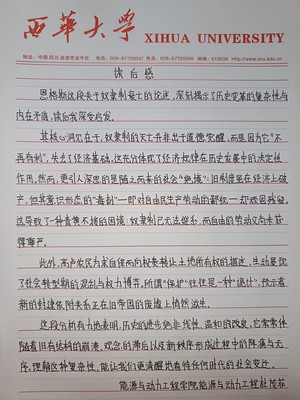 西華大學 XIHUA UNIVERSITY
地址：中国.四川.成都市金牛区 电话：028-87720037 传真：028-87720200 邮编：610039 Http://www.xhu.edu.cn
读后感
恩格斯这段关于奴隶制衰亡的论述，深刻揭示了历史变革的复杂性与
内在矛盾，读后我深受启发。
其核心洞见在于，奴隶制的灭亡并非出于道德觉醒，而是因为它"不
再有利"，失去了经济基础，这充分体现了经济规律在历史发展中的决定性
作用。然而，更引人深思的是随之而来的社会"绝境"：旧制度虽在经济上破
产，但其意识形态的"毒刺"—即对自由民生产劳动的鄙视—却顽固残留，
这导致了一种青黄不接的困境：奴隶制已无法维系，而自由的劳动又尚未获
得尊严。
此外，高卢农民为求自保而向权贵转让土地所有权的描述，生动展现
了社会转型期的混乱与权力博弈。所谓"保护"往往是一种"诡计"，预示着
新的封建依附关系正在旧帝国的废墟上悄然滋生。
这段分析有力地表明，历史的进步绝非线性、温和的改良，它常常伴
随着旧有结构的崩溃、观念的滞后以及新秩序形成过程中的阵痛与无
序。理解这种复杂性，能让我们更清醒地看待任何时代的社会变迁。
能源与动力工程学院能源与动力工程杜茂菲